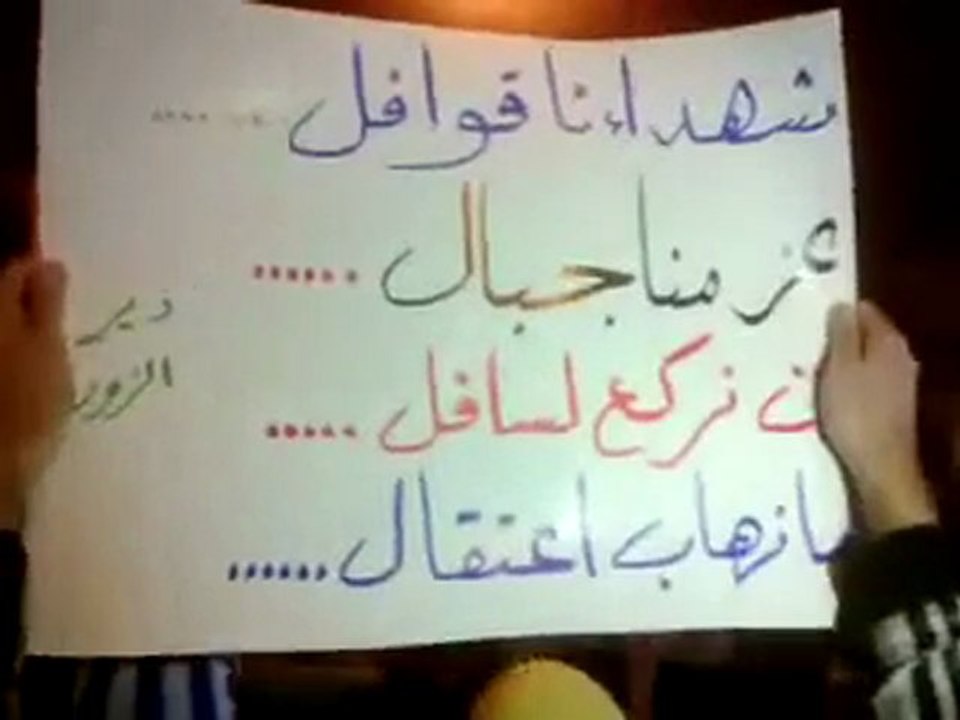 شهداءنا قوافل ......
عزمنا جبال ......
لن نركع لسافل ......
ما نهاب اعتقال ......
دير
الزور